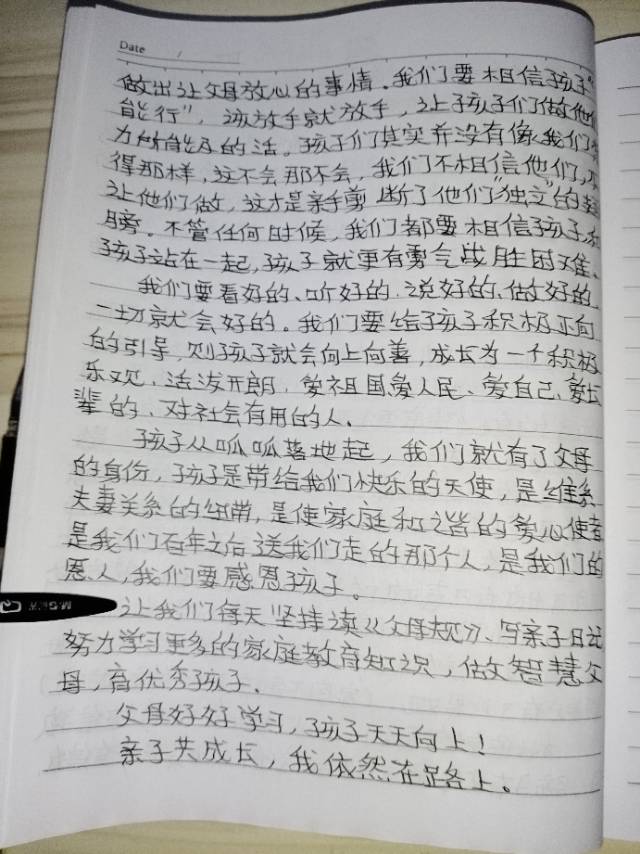 Date /
做出让父母放心的事情。我们要相信孩子"
能行",该放手就放手,让孩子们做他们
力所能及的活。孩子们其实并没有像我们
得那样,这不会那不会,我们不相信他们,不
让他们做,这才是亲手剪断了他们"独立"的
膀。不管任何时候,我们都要相信孩子,和
孩子站在一起,孩子就更有勇气战胜困难。
我们要看好的、听好的、说好的、做好的
一切就会好的。我们要给孩子积极正向
的引导,则孩子就会向上向善,成长为一个积极
乐观、活泼开朗、爱祖国爱人民、爱自己、爱长
辈的、对社会有用的人。
孩子从呱呱落地起,我们就有了父母
的身份,孩子是带给我们快乐的天使,是维系
夫妻关系的纽带,是使家庭和谐的爱心使者
是我们百年之后送我们走的那个人,是我们的
恩人,我们要感恩孩子。
让我们每天坚持读《父母规》、写亲子日记
努力学习更多的家庭教育知识,做智慧父
母,育优秀孩子。
父母好好学习,孩子天天向上!
亲子共成长,我依然在路上。
M&G